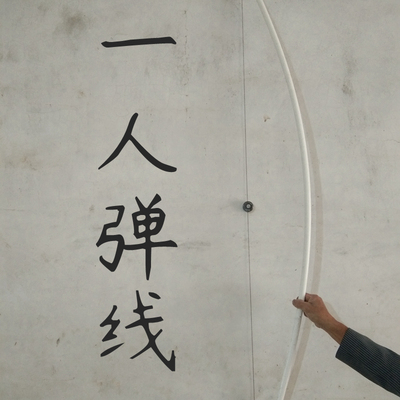 一人弹线